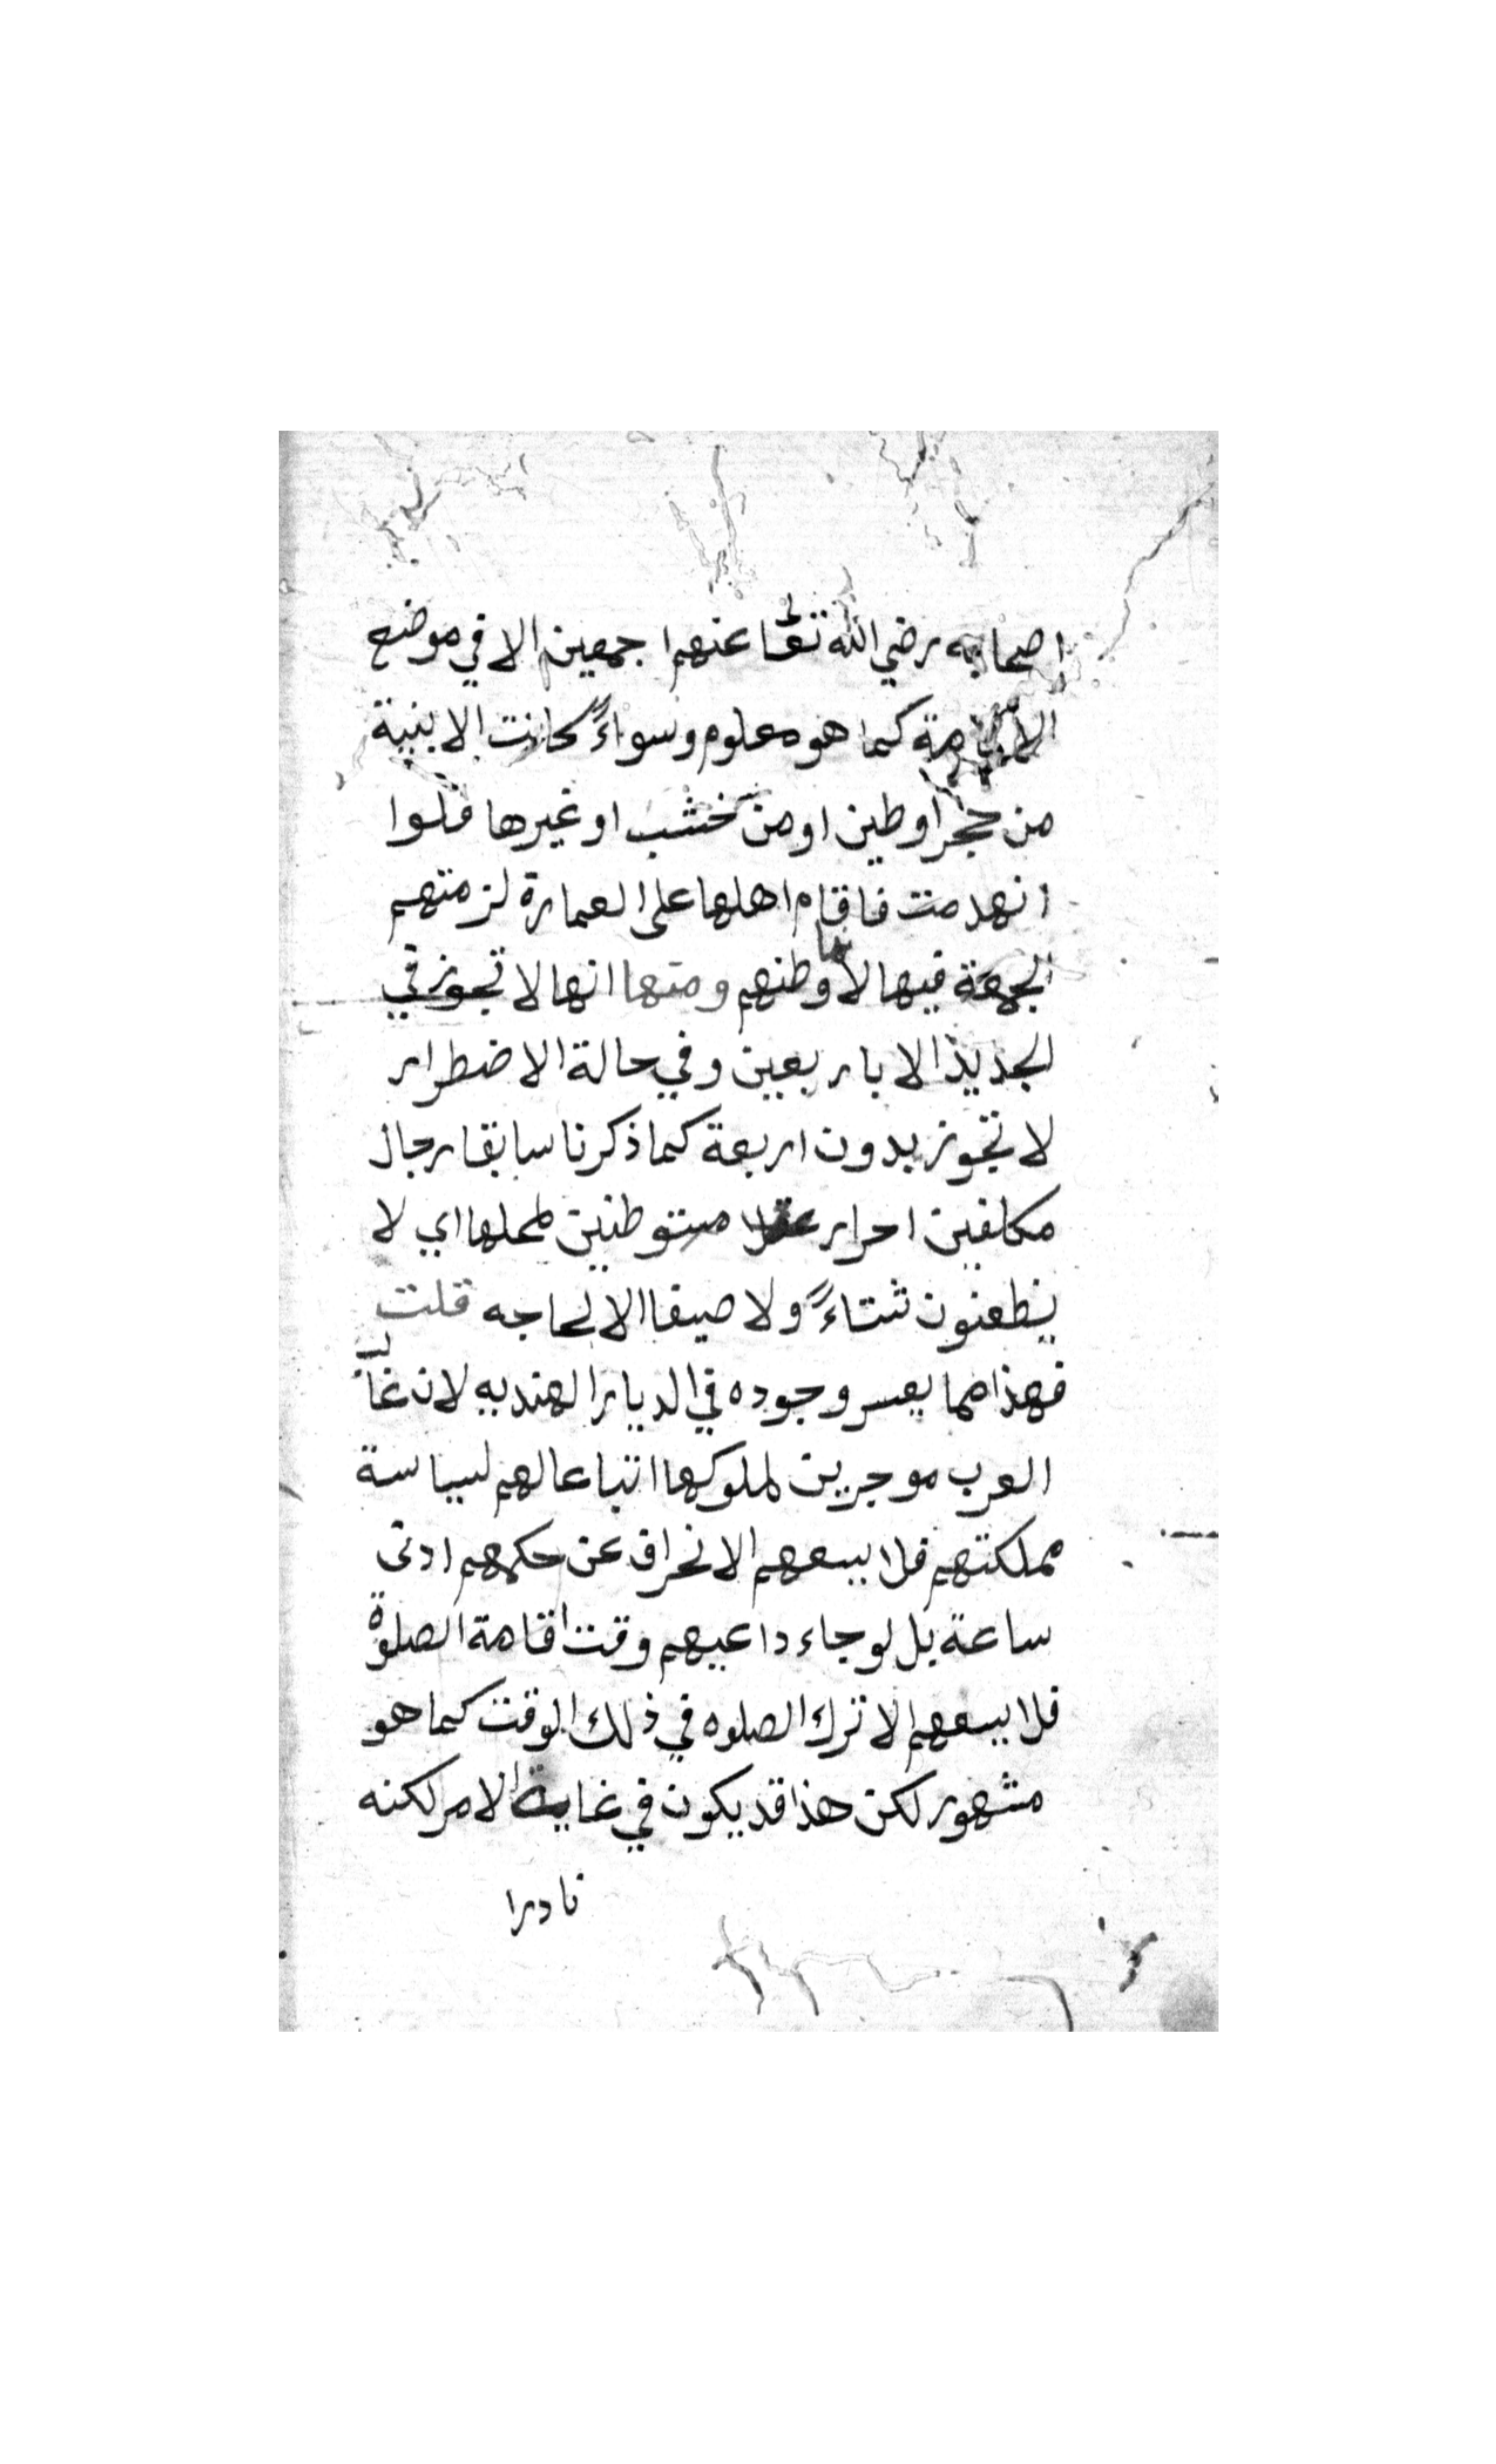 اصحابه رضي الله تعالى عنهم اجمعين الا في موضع
الاقامة كما هو معلوم وسواءً كانت الابنية
من حجر او طين او من خشب او غيرها فلوا
انهدمت فاقام اهلها على العمارة لزمتهم
الجمعة فيها لانها وطنهم ومنها انها لا تجوز في
الجديد الا باربعين وفي حالة الاضطرار
لا تجوز بدون اربعة كما ذكرنا سابقا رجال
مكلفين احرار متوطنين لمحلها اي لا
يظعنون شتاءً ولا صيفا الا لحاجه قلت
فهذا مما يعسر وجوده في الديار الهنديه لان غالب
العرب موجرين لملوكها اتباعا لهم لسياسة
مملكتهم فلا يسعهم الانحراف عن حكمهم ادنى
ساعة بل لو جاء داعيهم وقت اقامة الصلوة
فلا يسعهم الا ترك الصلوه في ذلك الوقت كما هو
مشهور لكن هذا قد يكون في غاية الامر لكنه
نادرا